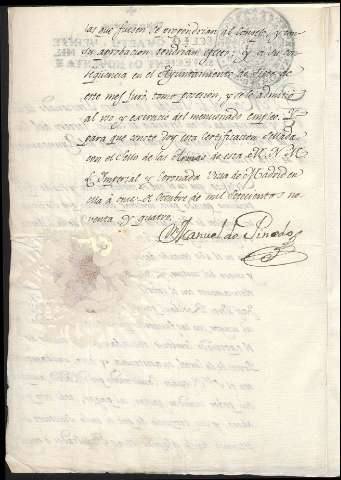 las que fuesen se expondrian al Consejo, y con
su aprobacion tendrian efecto; y a su con
seqüencia en el Ayuntamiento de siete de
este mes juró, tomó posesion, y se le admitió
al uso y exercicio del mencionado empleo. Y
para que conste doy esta Certificacion sellada
con el Sello de las Armas de esta M. N. M.
L. Imperial y Coronada Villa de Madrid en
ella á once de Octubre de mil setecientos no
venta y quatro.
Manuel de Pinedo